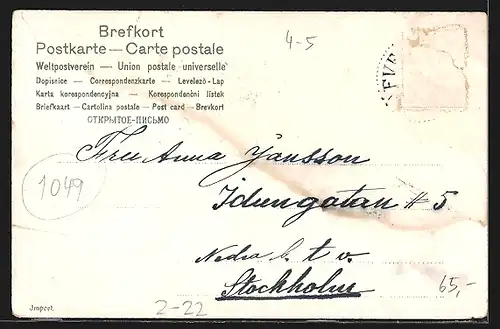 Brefkort
Postkarte — Carte postale
Weltpostverein — Union postale universelle
Dopisnice — Correspondenzkarte — Levelező-Lap
Karta korespondencyjna — Korespondenční lístek
Briefkaart — Cartolina postale — Post card — Brevkort
ОТКРЫТОЕ-ПИСЬМО
4-5
1049
Fru Anna Jansson
Idungatan # 5
Nedra b. t. v.
Stockholm
65,-
Import.
2-22